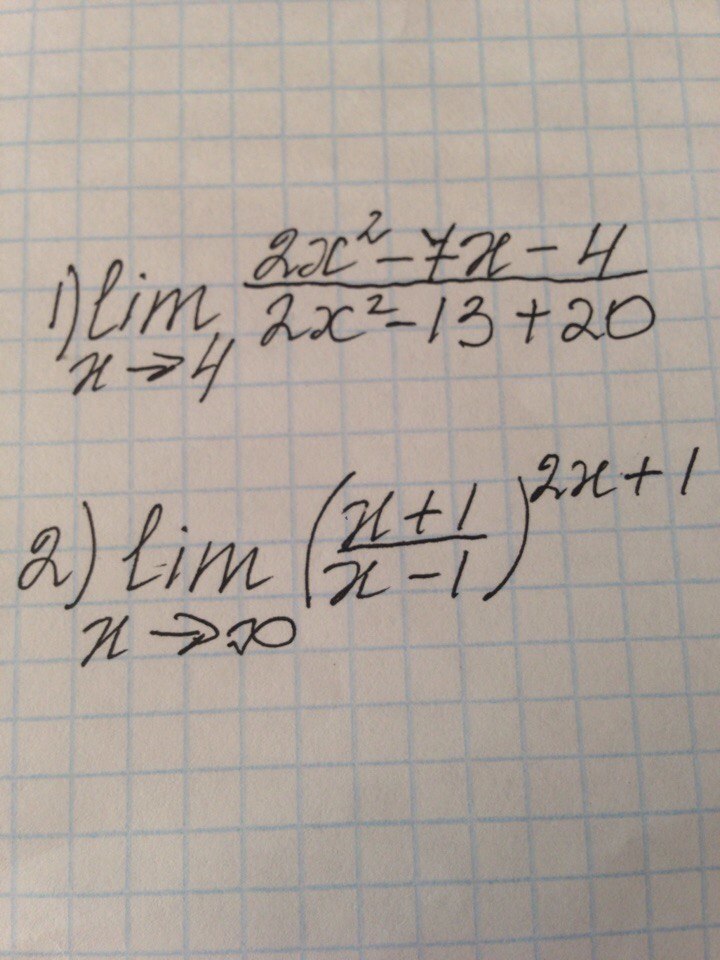 1) lim x→4 (2x² - 7x - 4) / (2x² - 13 + 20)
2) lim x→∞ ((x + 1) / (x - 1))^(2x + 1)